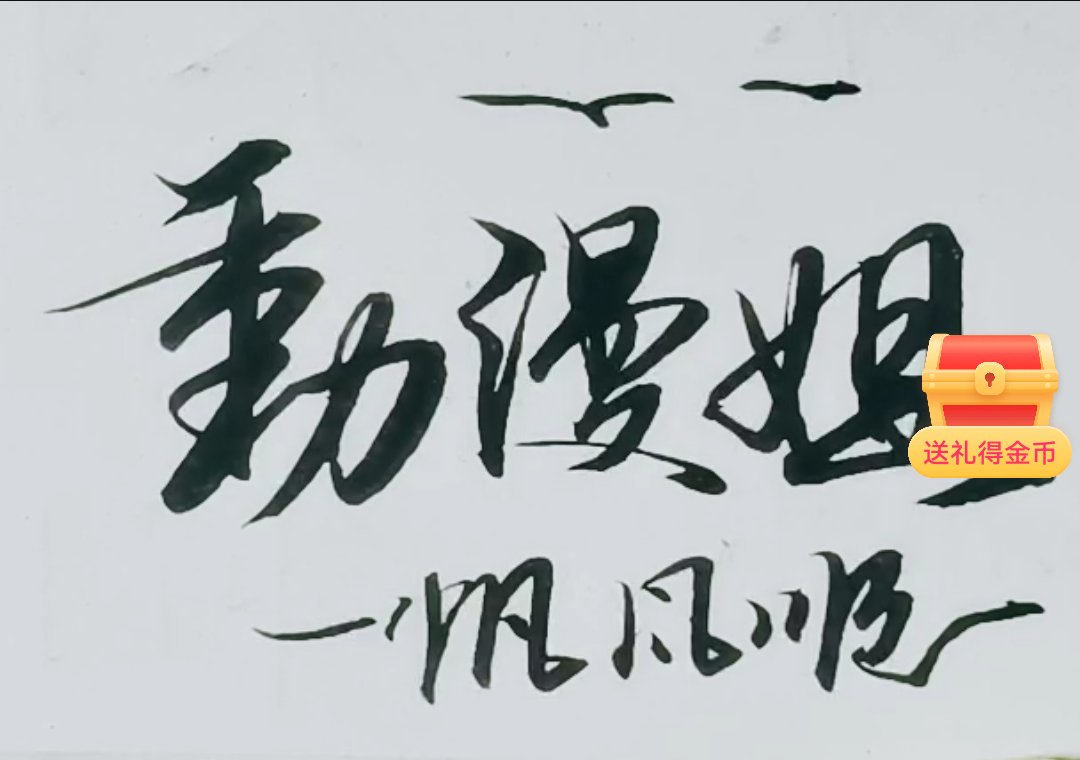 動漫姐
送礼得金币
一帆风顺